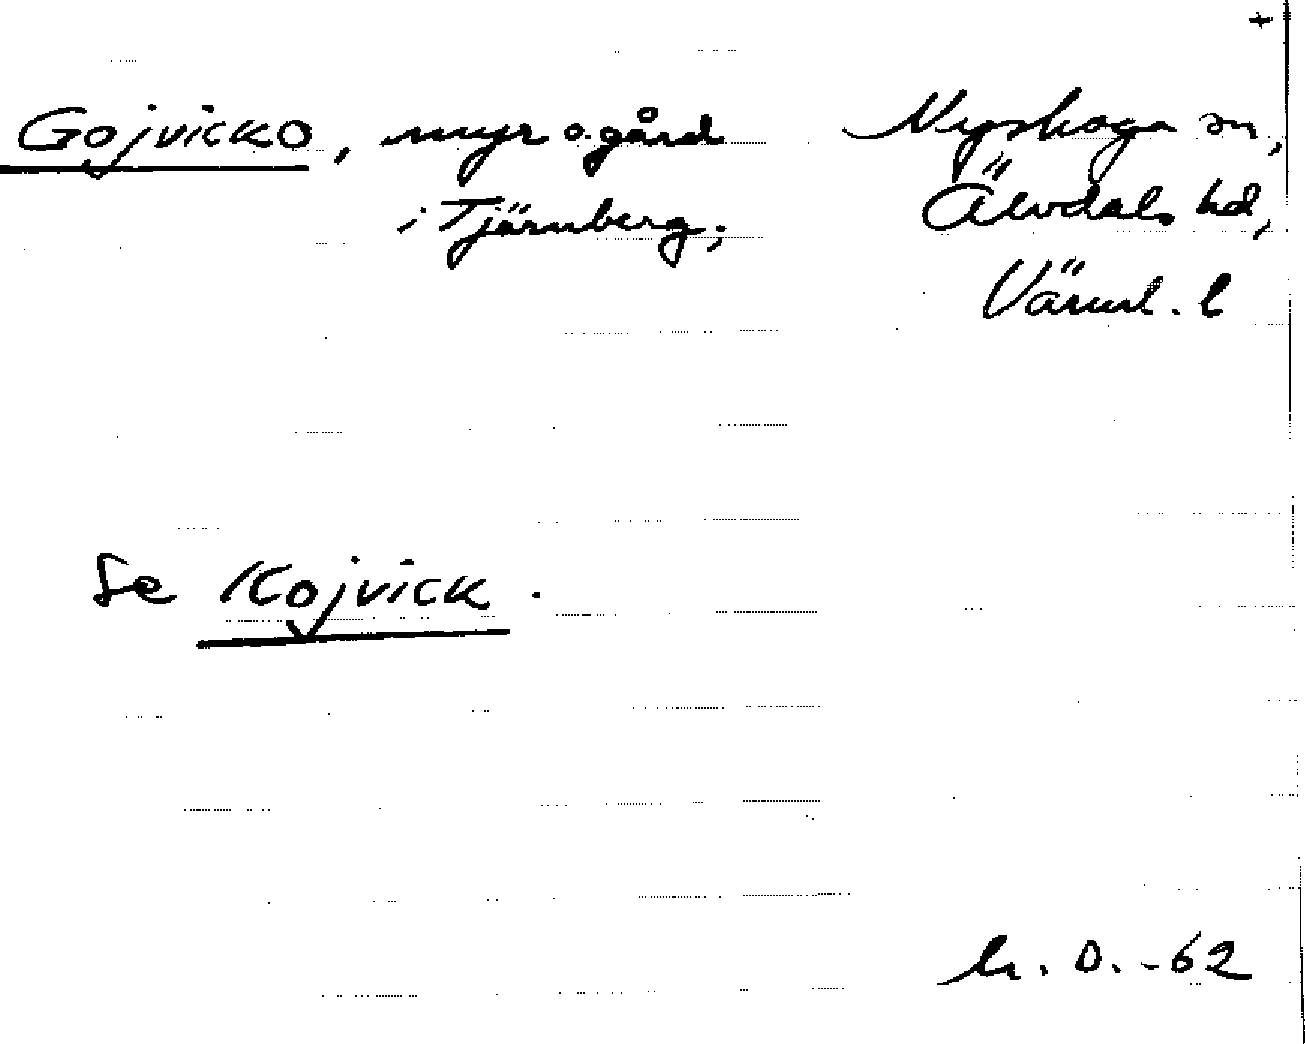 +
Gojvicko, myr o. gård Nyskoga sn,
i Tjärnberg; Älvdals hd,
Värml. l
Se Kojvick.
O. -62